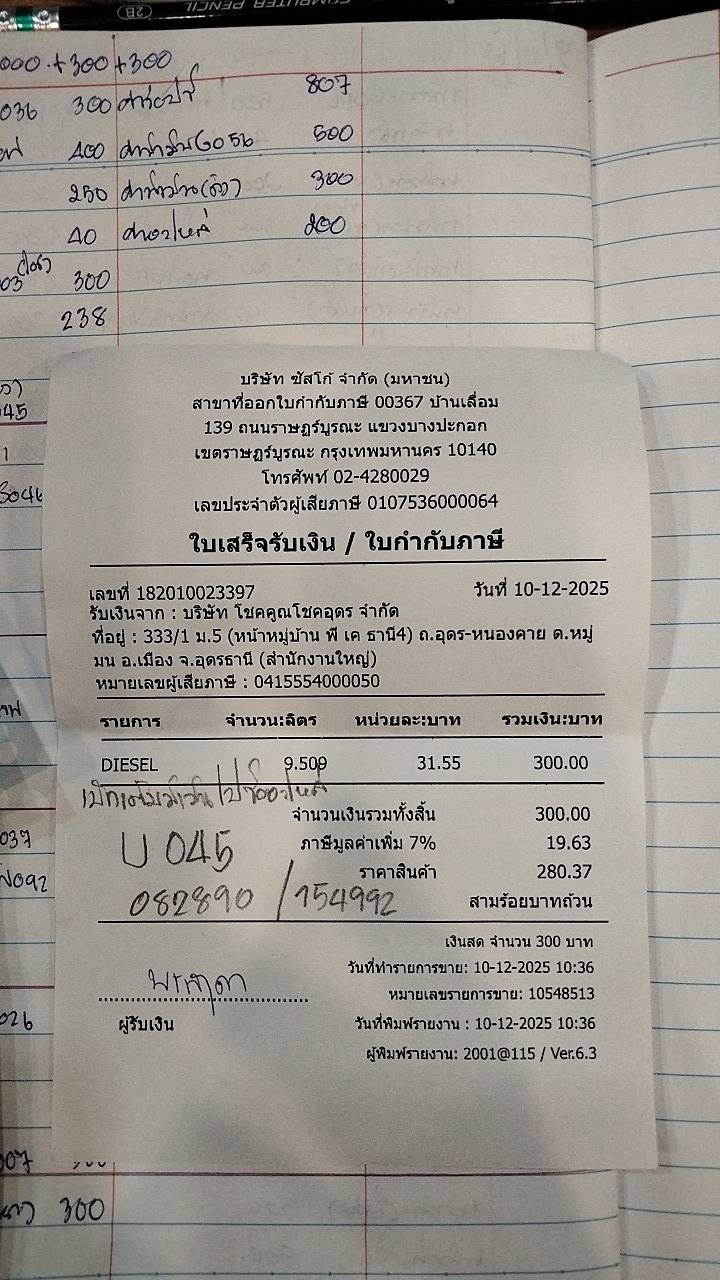 COMPUTER PENCIL 2B
000.+300+300
036 300 807
400 500
250 300
40 200
03 300
238
045
1
3046
บริษัท ซัสโก้ จำกัด (มหาชน)
สาขาที่ออกใบกำกับภาษี 00367 บ้านเลื่อม
139 ถนนราษฎร์บูรณะ แขวงบางปะกอก
เขตราษฎร์บูรณะ กรุงเทพมหานคร 10140
โทรศัพท์ 02-4280029
เลขประจำตัวผู้เสียภาษี 0107536000064
ใบเสร็จรับเงิน / ใบกำกับภาษี
เลขที่ 182010023397 วันที่ 10-12-2025
รับเงินจาก : บริษัท โชคคูณโชคอุดร จำกัด
ที่อยู่ : 333/1 ม.5 (หน้าหมู่บ้าน พี เค ธานี4) ถ.อุดร-หนองคาย ต.หมู่
มน อ.เมือง จ.อุดรธานี (สำนักงานใหญ่)
หมายเลขผู้เสียภาษี : 0415554000050
รายการ จำนวน:ลิตร หน่วยละ:บาท รวมเงิน:บาท
DIESEL 9.509 31.55 300.00
จำนวนเงินรวมทั้งสิ้น 300.00
037 U 045 ภาษีมูลค่าเพิ่ม 7% 19.63
ราคาสินค้า 280.37
082890 / 154992 สามร้อยบาทถ้วน
เงินสด จำนวน 300 บาท
วันที่ทำรายการขาย: 10-12-2025 10:36
หมายเลขรายการขาย: 10548513
026 ผู้รับเงิน วันที่พิมพ์รายงาน : 10-12-2025 10:36
ผู้พิมพ์รายงาน: 2001@115 / Ver.6.3
007
300